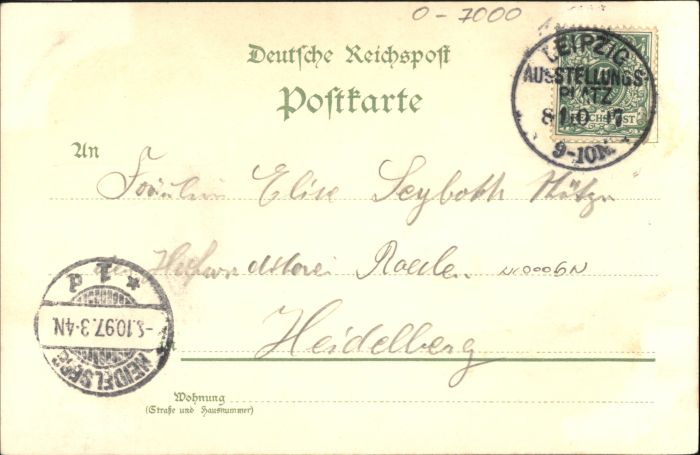 0-7000
Deutsche Reichspost
Postkarte
LEIPZIG
AUSSTELLUNGS-
PLATZ
9-10N.
REICHSPOST
An
Fräulein Elise Seyboth
N0006N
Heidelberg
HEIDELBERG
-5.10.97.3-4N
* 1 d
Wohnung
(Straße und Hausnummer)